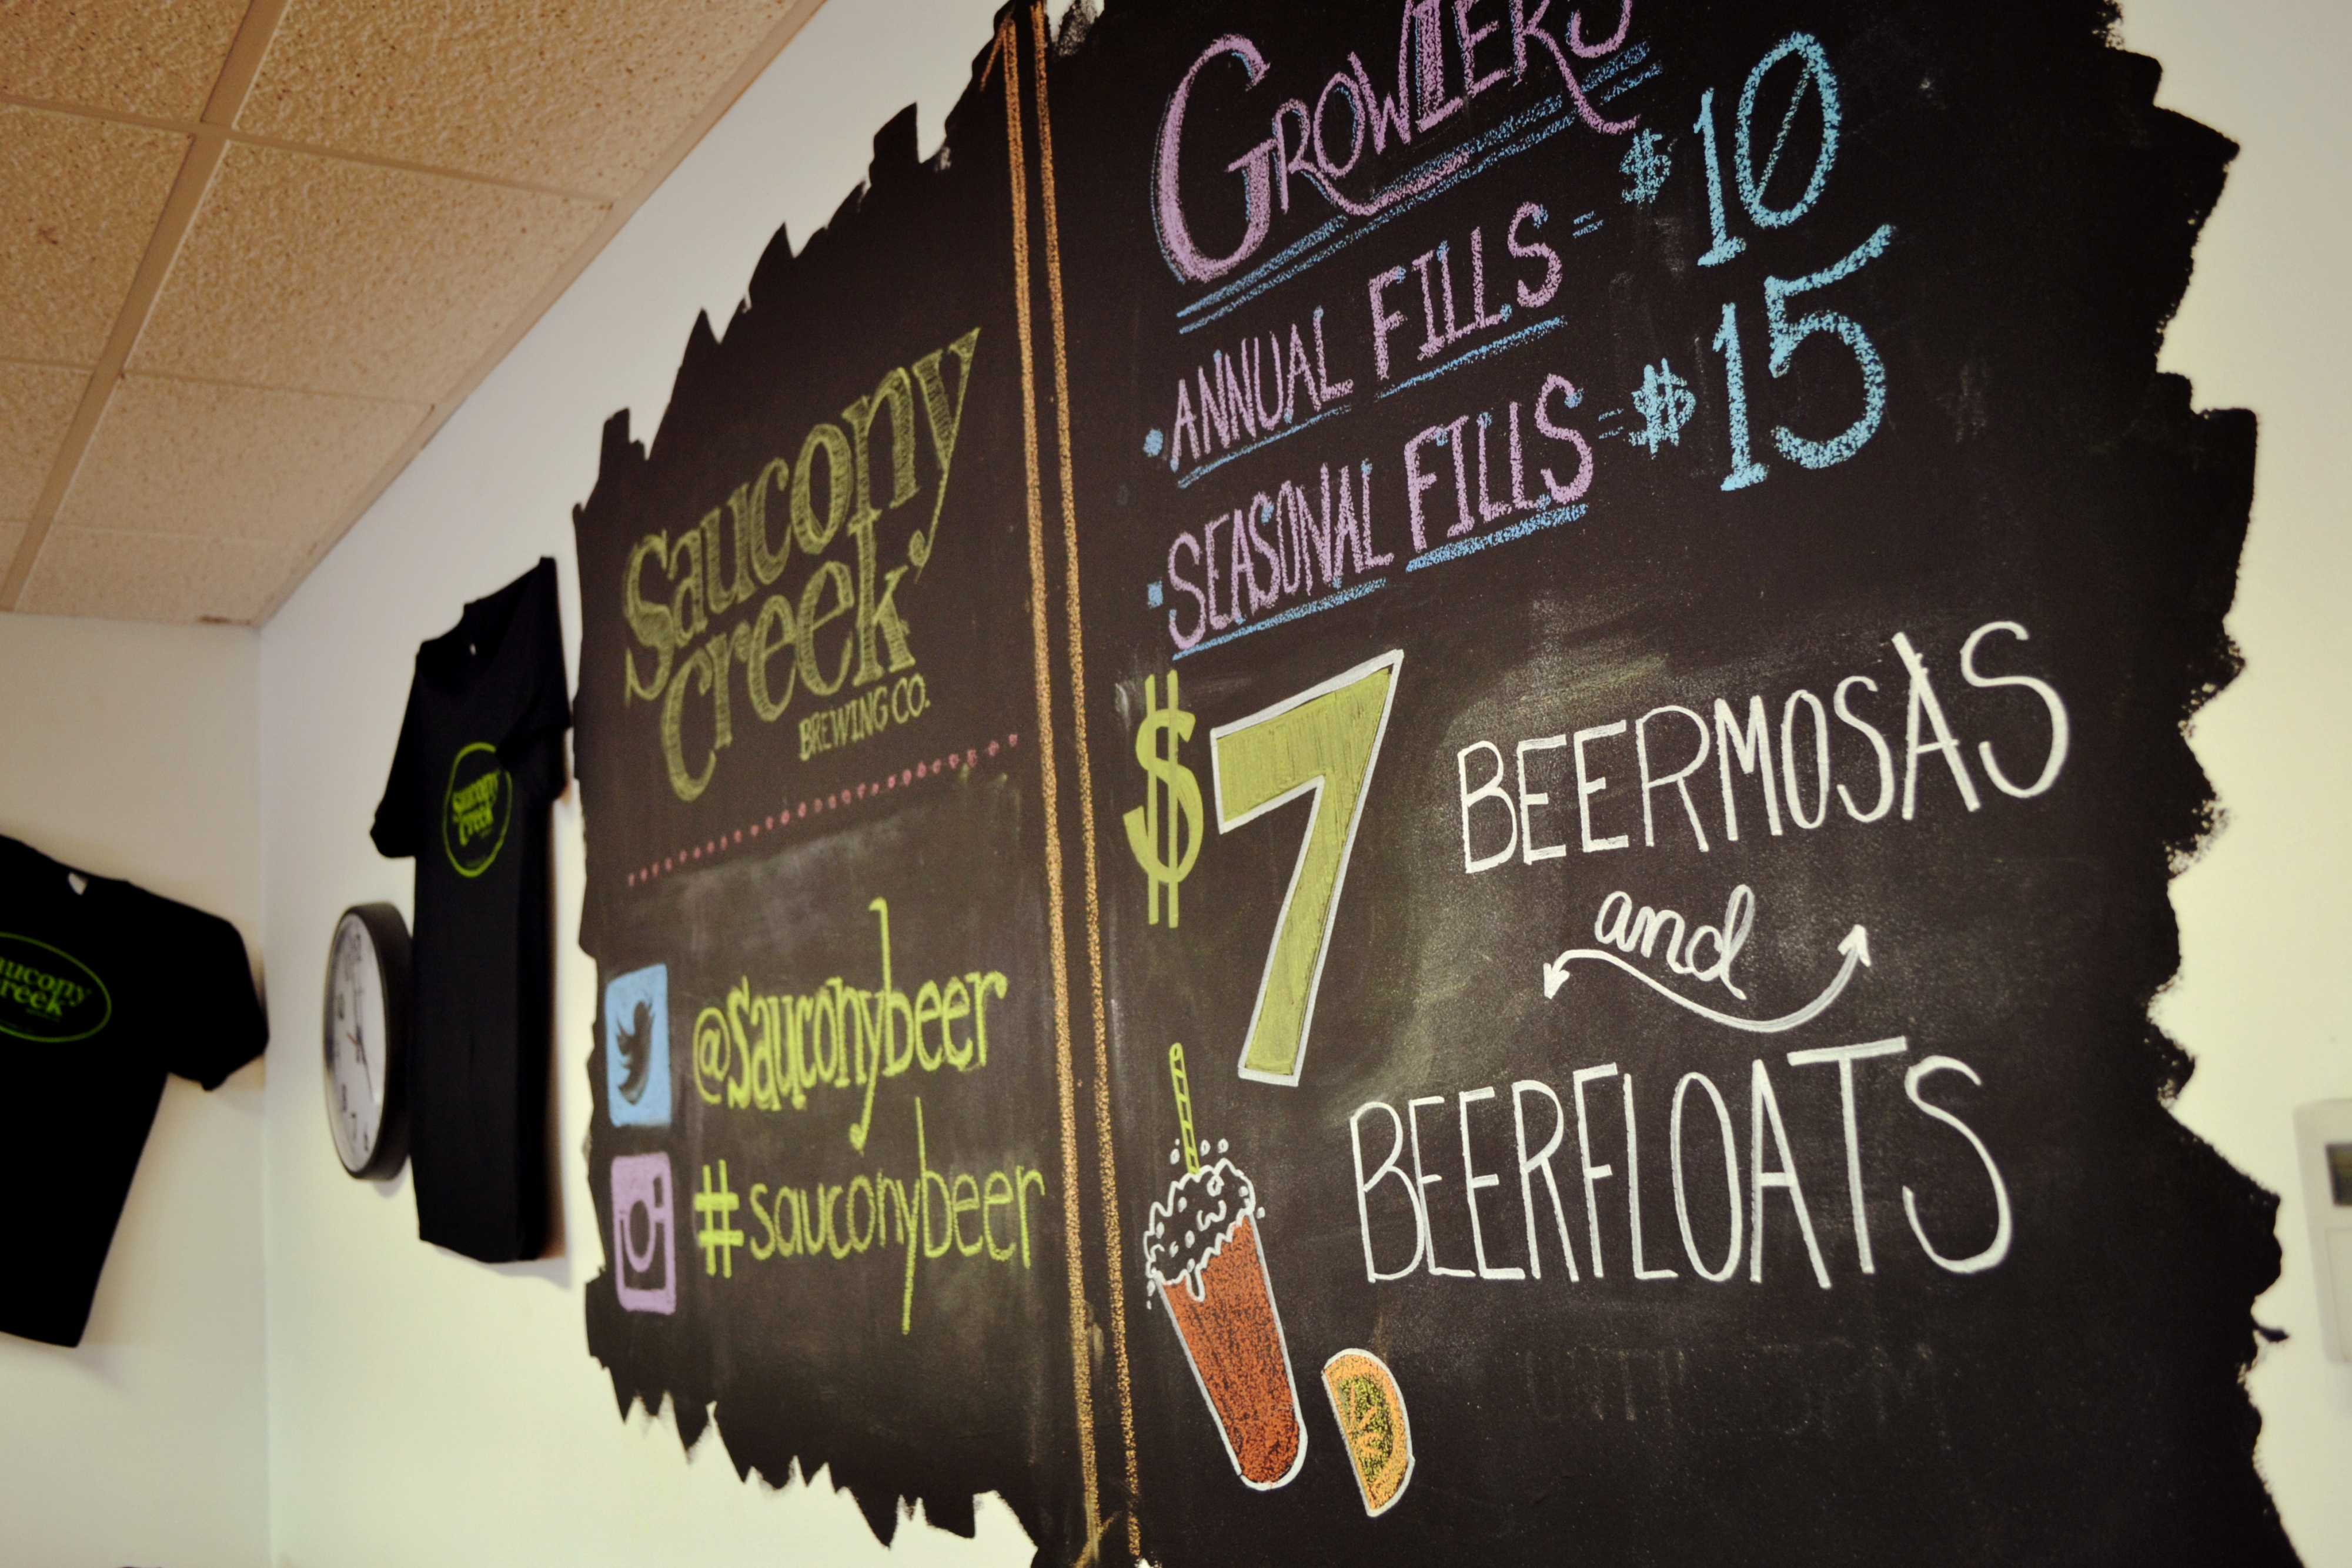 Saucony
Creek
BREWING CO.
@sauconybeer
#sauconybeer
GROWLERS
• ANNUAL FILLS = $10
• SEASONAL FILLS = $15
$7 BEERMOSAS
and
BEERFLOATS
Saucony
Creek
aucony
reek